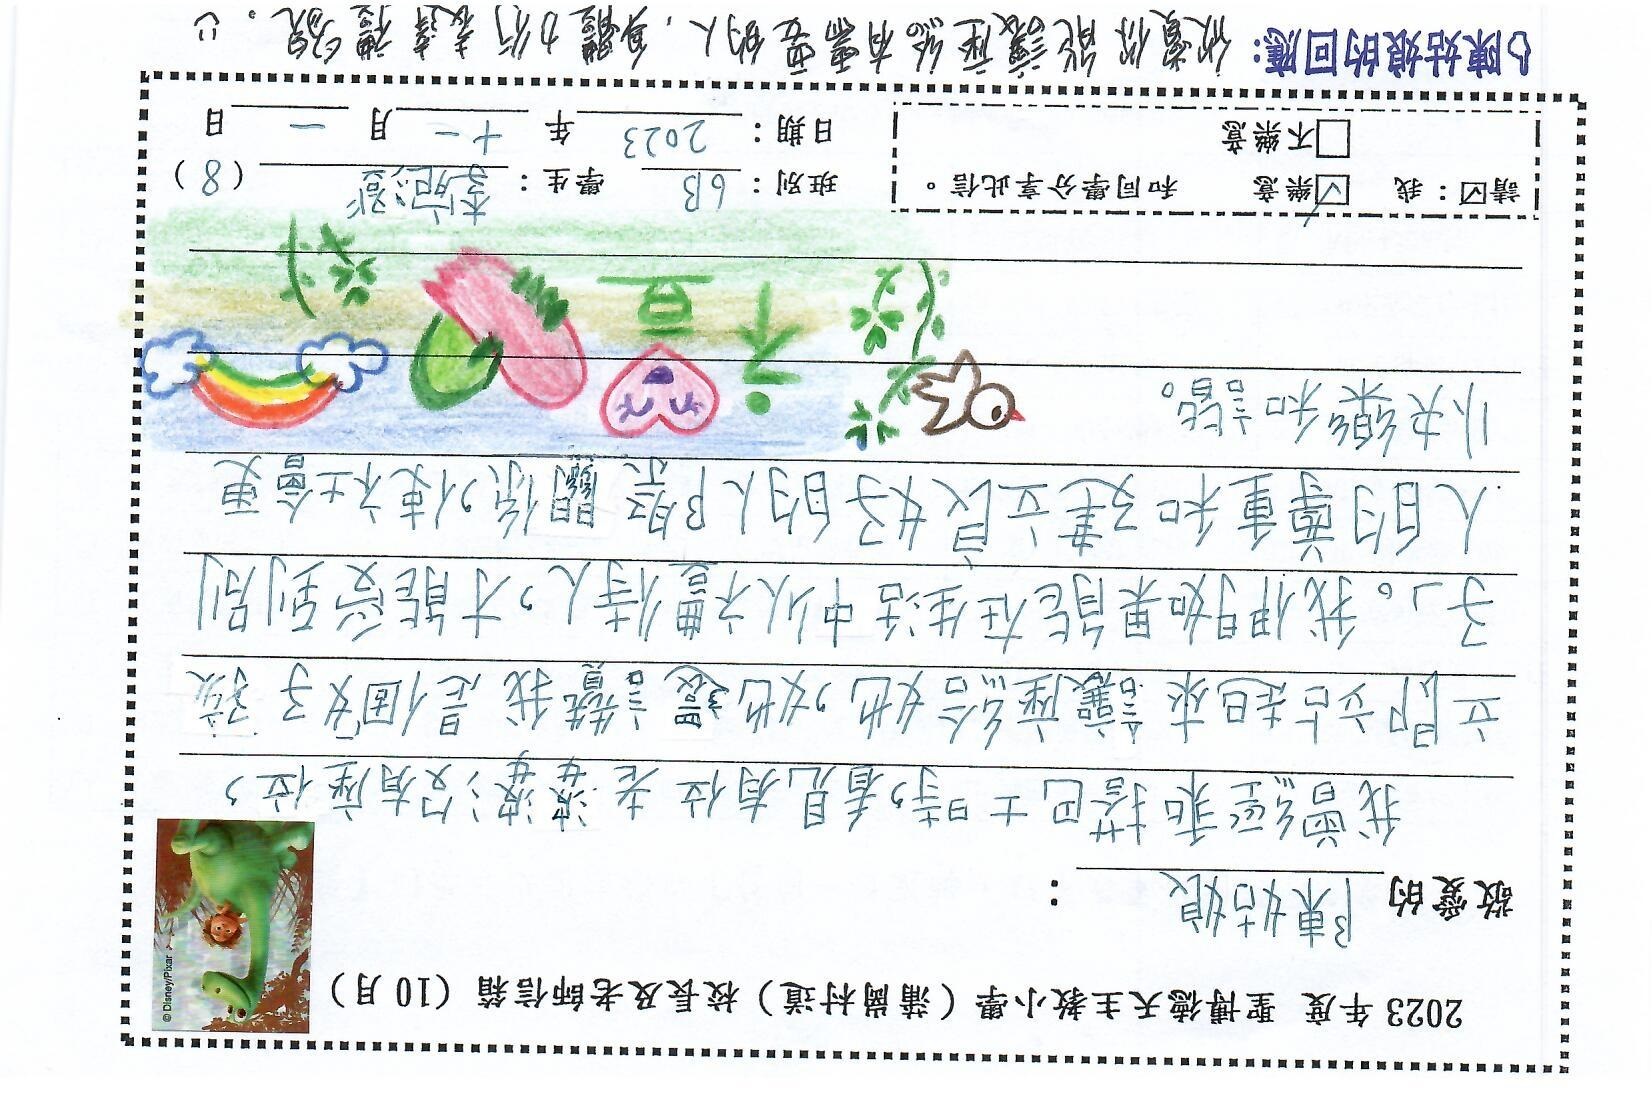 2023 年度 聖博德天主教小學（蒲崗村道）校長及老師信箱（10 月）
© Disney/Pixar
敬愛的 陳姑娘 ：
我曾經乘搭巴士時，看見有位老婆婆沒有座位，
立即站起來讓座給她，她還讚我是個「好孩
子」。我們如果能在生活中以禮待人，才能受到別
人的尊重和建立良好的人際關係，使社會更
加快樂和諧。
有禮
請☑：我 ☑樂意 和同學分享此信。
□不樂意
班別： 6B 學生： 李 澄 （8）
日期： 2023 年 十一 月 一 日
陳姑娘的回應： 欣賞你能讓座給有需要的人，身體力行表達禮貌。